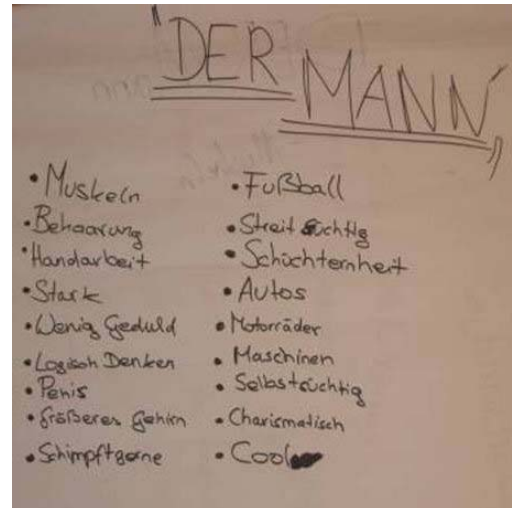 "DER
MANN"
• Muskeln
• Behaarung
• Handarbeit
• Stark
• Wenig Geduld
• Logisch Denken
• Penis
• Größeres Gehirn
• Schimpft gerne
• Fußball
• Streitsüchtig
• Schüchternheit
• Autos
• Motorräder
• Maschinen
• Selbstsüchtig
• Charismatisch
• Cool